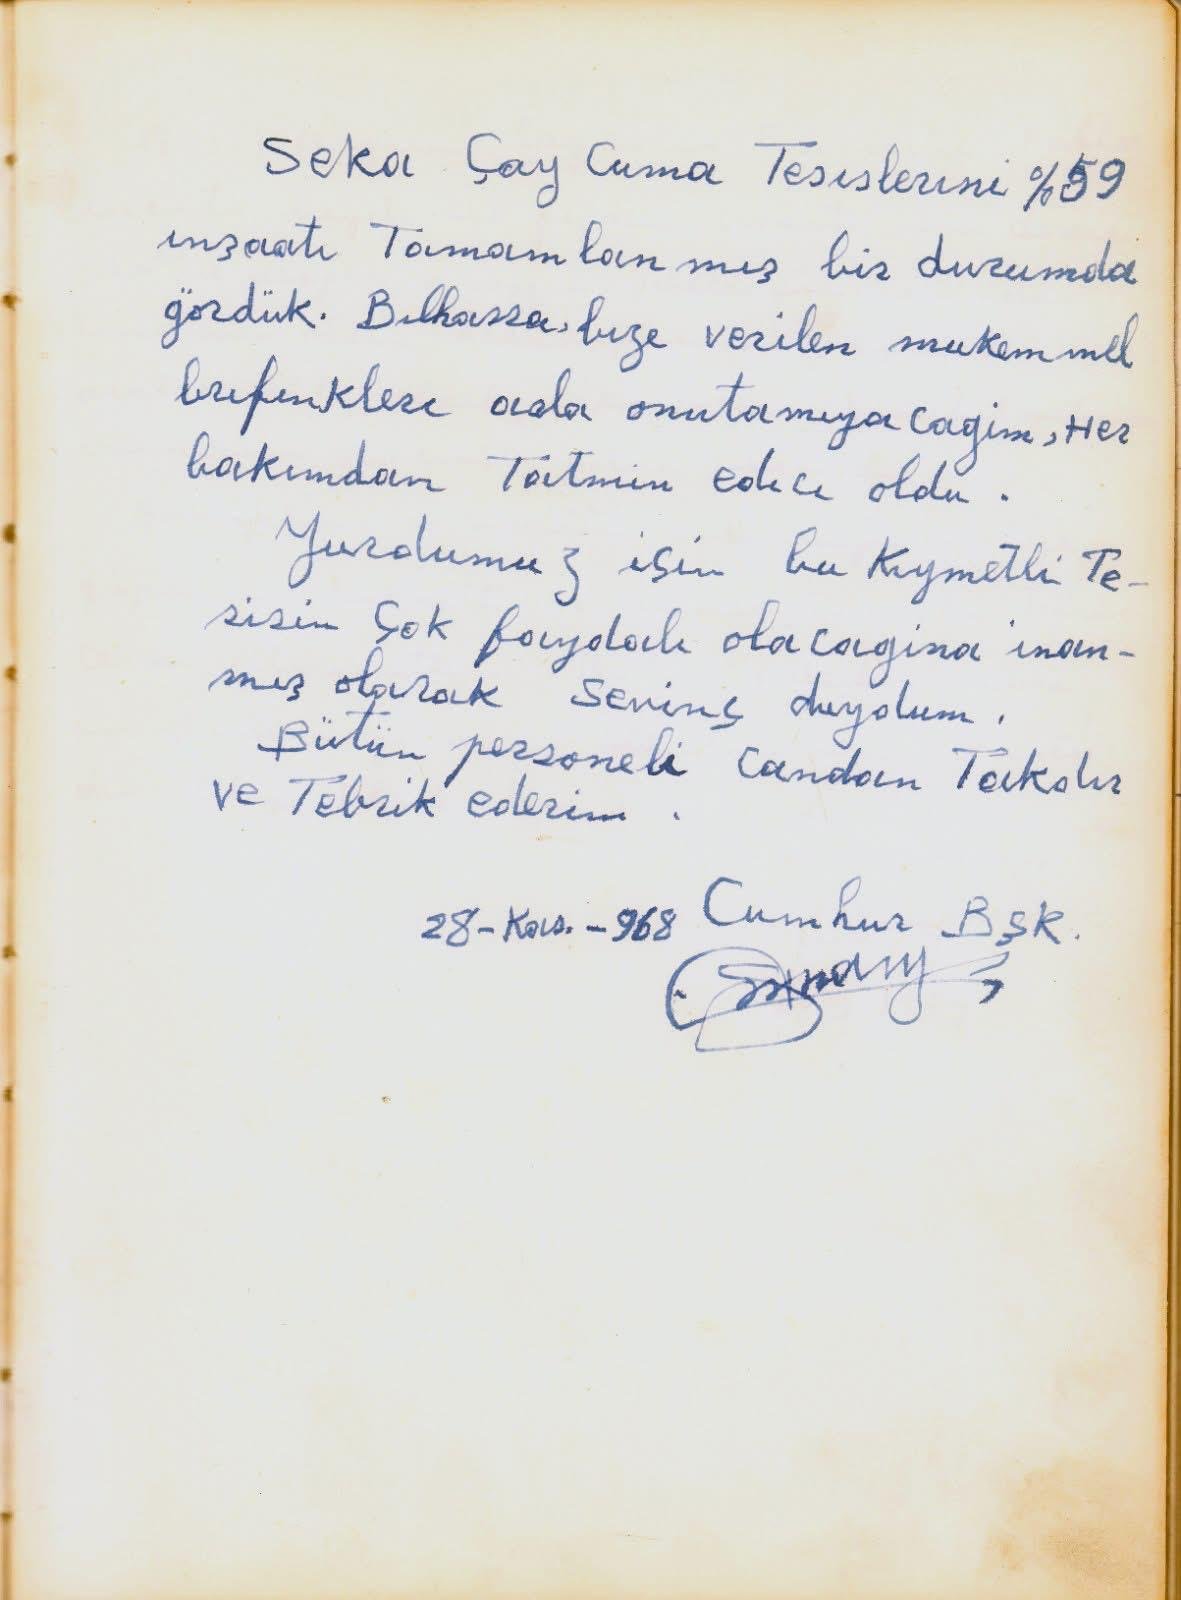 Seka Çay Cuma Tesislerini %59
inşaatı Tamamlanmış bir durumda
gördük. Bilhassa, bize verilen mukemmel
brifinkleri asla onutamıyacagim, Her
bakımdan Tatmin edici oldu.
Yurdumuz için bu Kıymetli Te-
sisin Çok faydalı olacagina inan-
mış olarak Sevinç duydum.
Bütün personeli Candan Takdir
ve Tebrik ederim.
28-Kas.-968 Cumhur Bşk.